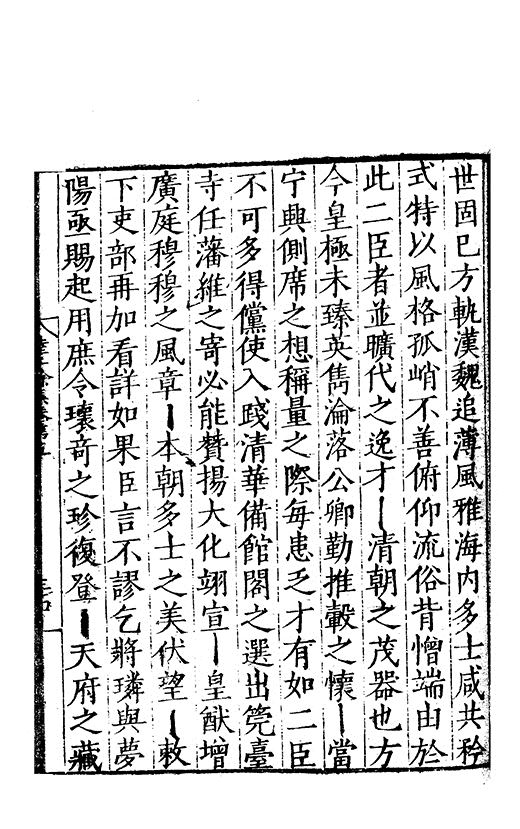 世固已方軌漢魏追薄風雅海内多士咸共矜
式特以風格孤峭不善俯仰流俗背憎端由於
此二臣者並曠代之逸才清朝之茂器也方
今皇極未臻英雋淪落公卿勤推轂之懷當
宁興側席之想稱量之際每患乏才有如二臣
不可多得儻使入踐清華備館閣之選出筦臺
寺任藩維之寄必能贊揚大化翊宣皇猷增
廣庭穆穆之風章本朝多士之美伏望敕
下吏部再加看詳如果臣言不謬乞將璘與夢
陽亟賜起用庶令瓌竒之珍復登天府之藏